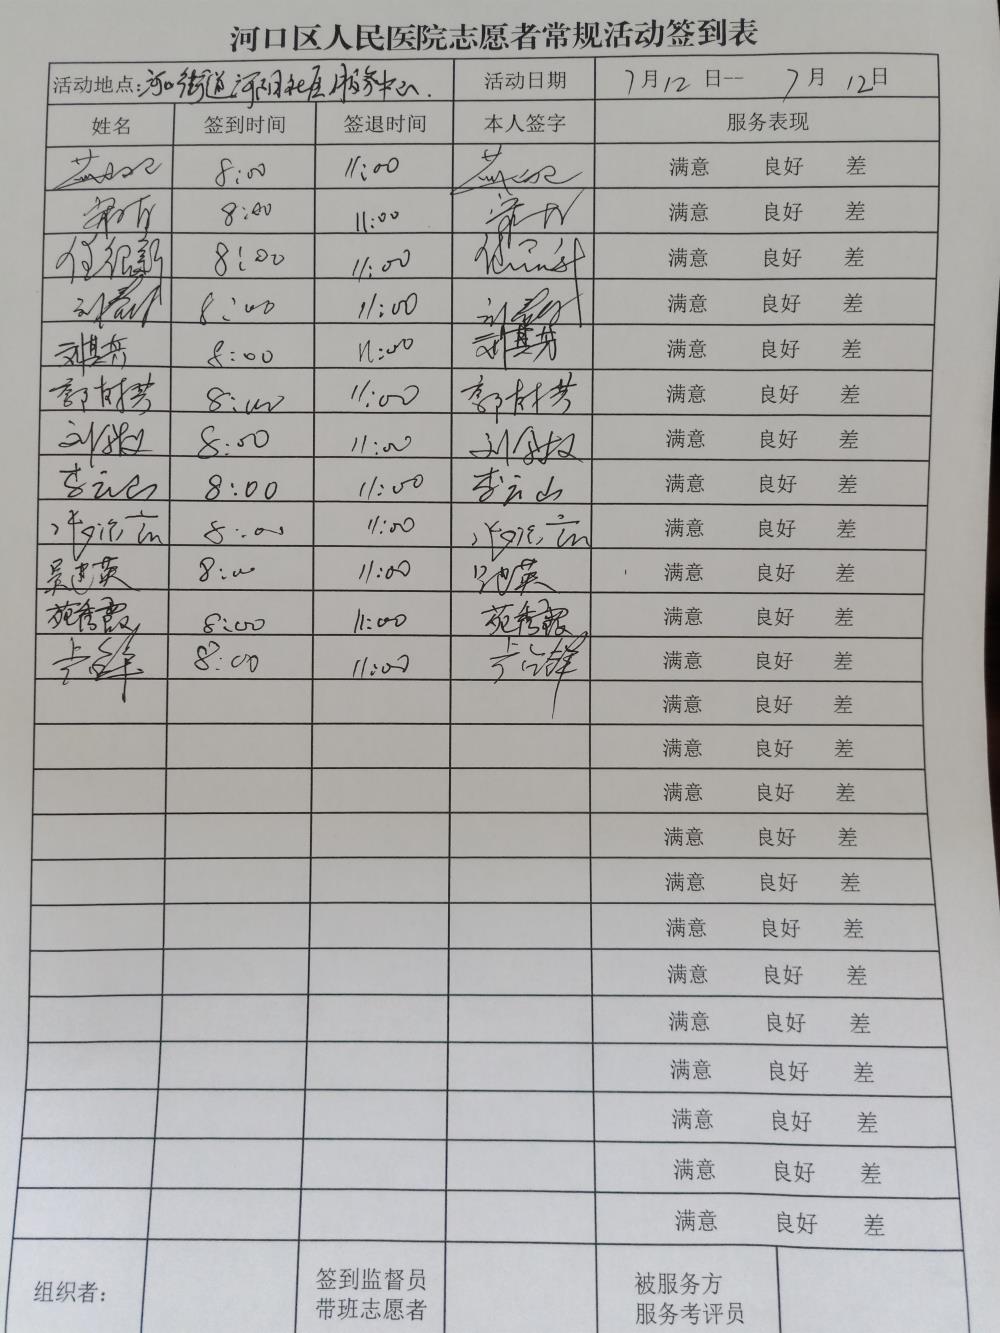 河口区人民医院志愿者常规活动签到表
活动地点：河口街道河阳社区服务中心. 活动日期 7月12日--7月12日
姓名 签到时间 签退时间 本人签字 服务表现
8:00 11:00 满意 良好 差
8:00 11:00 满意 良好 差
8:00 11:00 满意 良好 差
8:00 11:00 满意 良好 差
刘其兵 8:00 11:00 刘其兵 满意 良好 差
郭树芸 8:00 11:00 郭树芸 满意 良好 差
8:00 11:00 满意 良好 差
李云山 8:00 11:00 李云山 满意 良好 差
8:00 11:00 满意 良好 差
吴建英 8:00 11:00 吴建英 满意 良好 差
苑秀霞 8:00 11:00 苑秀霞 满意 良好 差
8:00 11:00 满意 良好 差
满意 良好 差
满意 良好 差
满意 良好 差
满意 良好 差
满意 良好 差
满意 良好 差
满意 良好 差
满意 良好 差
满意 良好 差
满意 良好 差
满意 良好 差
满意 良好 差
组织者： 签到监督员 被服务方
带班志愿者 服务考评员